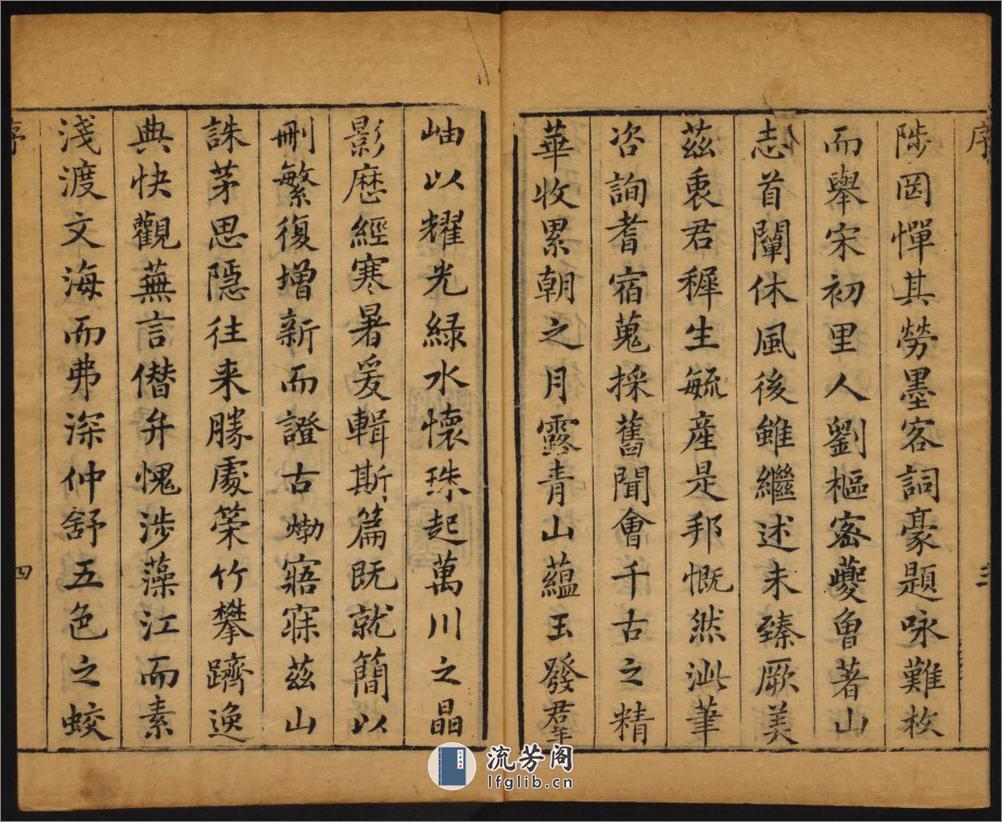 序
陟罔憚其勞墨客詞豪題咏難枚
而舉宋初里人劉樞密夔曾著山
志首闡休風後雖繼述未臻厥美
茲衷君穉生毓產是邦慨然泚筆
咨詢耆宿蒐採舊聞會千古之精
華收累朝之月露青山蘊玉發羣
岫以耀光綠水懷珠起萬川之晶
影歷經寒暑爰輯斯篇既就簡以
刪繁復增新而證古勩寤寐茲山
誅茅思隱往来勝處筞竹攀躋逸
典快觀蕪言僭弁愧涉藻江而素
淺渡文海而弗深仲舒五色之蛟
序
四
流芳阁
lfglib.cn